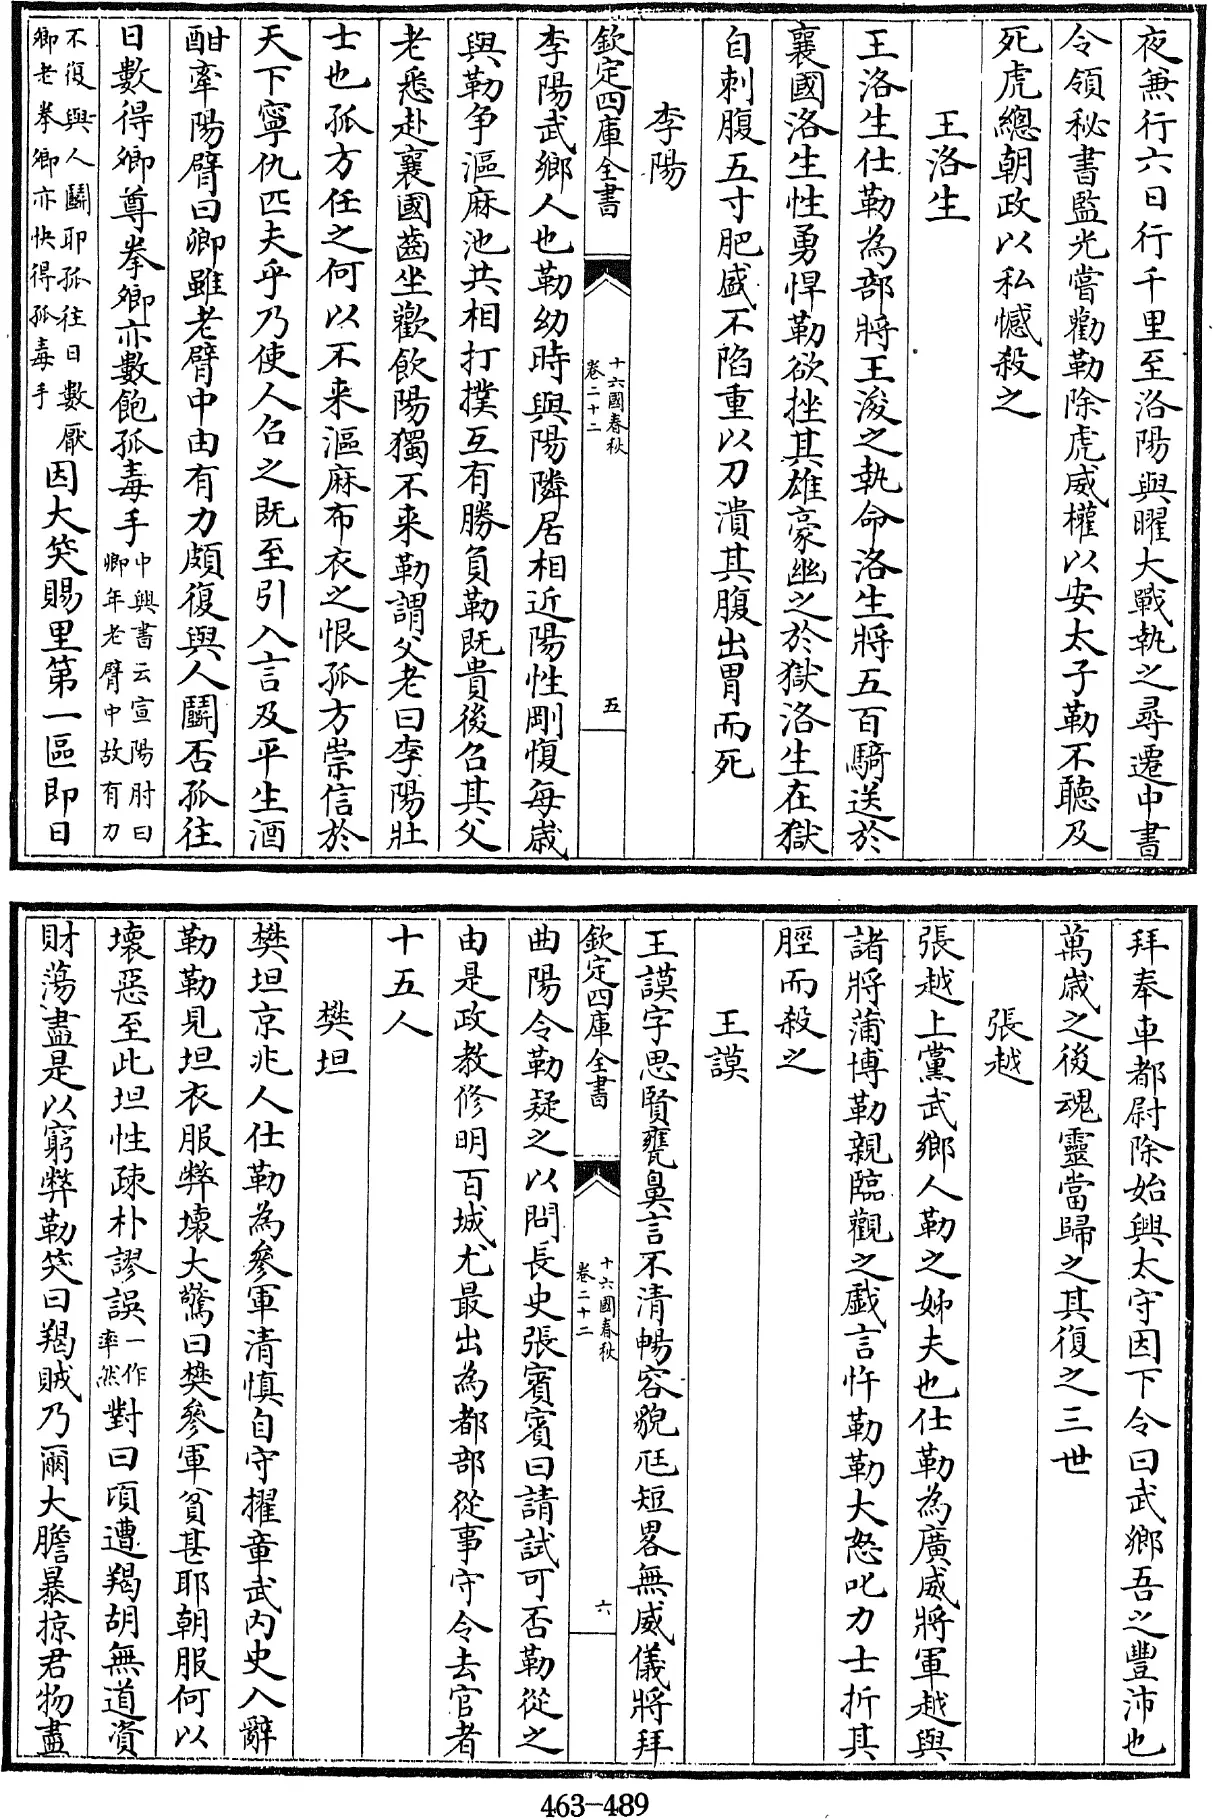 夜兼行六日行千里至洛陽與曜大戰執之尋遷中書
令領秘書監光嘗勸勒除虎威權以安太子勒不聽及
死虎總朝政以私憾殺之
王洛生
王洛生仕勒為部將王浚之執命洛生將五百騎送於
襄國洛生性勇悍勒欲挫其雄豪幽之於獄洛生在獄
自刺腹五寸肥盛不陷重以刀潰其腹出胃而死
李陽
欽定四庫全書
十六國春秋
卷二十二
五
李陽武鄉人也勒幼時與陽隣居相近陽性剛愎每歳
與勒争漚麻池共相打撲互有勝負勒既貴後召其父
老悉赴襄國齒坐歡飲陽獨不来勒謂父老曰李陽壯
士也孤方任之何以不来漚麻布衣之恨孤方崇信於
天下寧仇匹夫乎乃使人召之既至引入言及平生酒
酣牽陽臂曰卿雖老臂中由有力頗復與人鬬否孤往
日數得卿尊拳卿亦數飽孤毒手中興書云宣陽肘曰卿年老臂中故有力
不復與人鬬耶孤往日數厭卿老拳卿亦快得孤毒手因大笑賜里第一區即日
拜奉車都尉除始興太守因下令曰武鄉吾之豐沛也
萬歳之後魂靈當歸之其復之三世
張越
張越上黨武鄉人勒之姊夫也仕勒為廣威將軍越與
諸將蒲博勒親臨觀之戯言忤勒勒大怒叱力士折其
脛而殺之
王謨
王謨字思賢甕鼻言不清暢容貌尩短畧無威儀將拜
欽定四庫全書
十六國春秋
卷二十二
六
曲陽令勒疑之以問長史張賓賓曰請試可否勒從之
由是政教修明百城尤最出為都部從事守令去官者
十五人
樊坦
樊坦京兆人仕勒為參軍清慎自守擢章武内史入辭
勒勒見坦衣服弊壞大驚曰樊參軍貧甚耶朝服何以
壞惡至此坦性疎朴謬誤一作率然對曰頃遭羯胡無道資
財蕩盡是以窮弊勒笑曰羯賊乃爾大膽暴掠君物盡
463-489